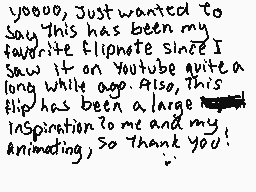 yoooo, Just wanted To
Say This has been my
favorite flipnote since I
Saw it on Youtube quite a
long while ago. Also, This
flip has been a large
Inspiration To me and my
animating, So Thank You!